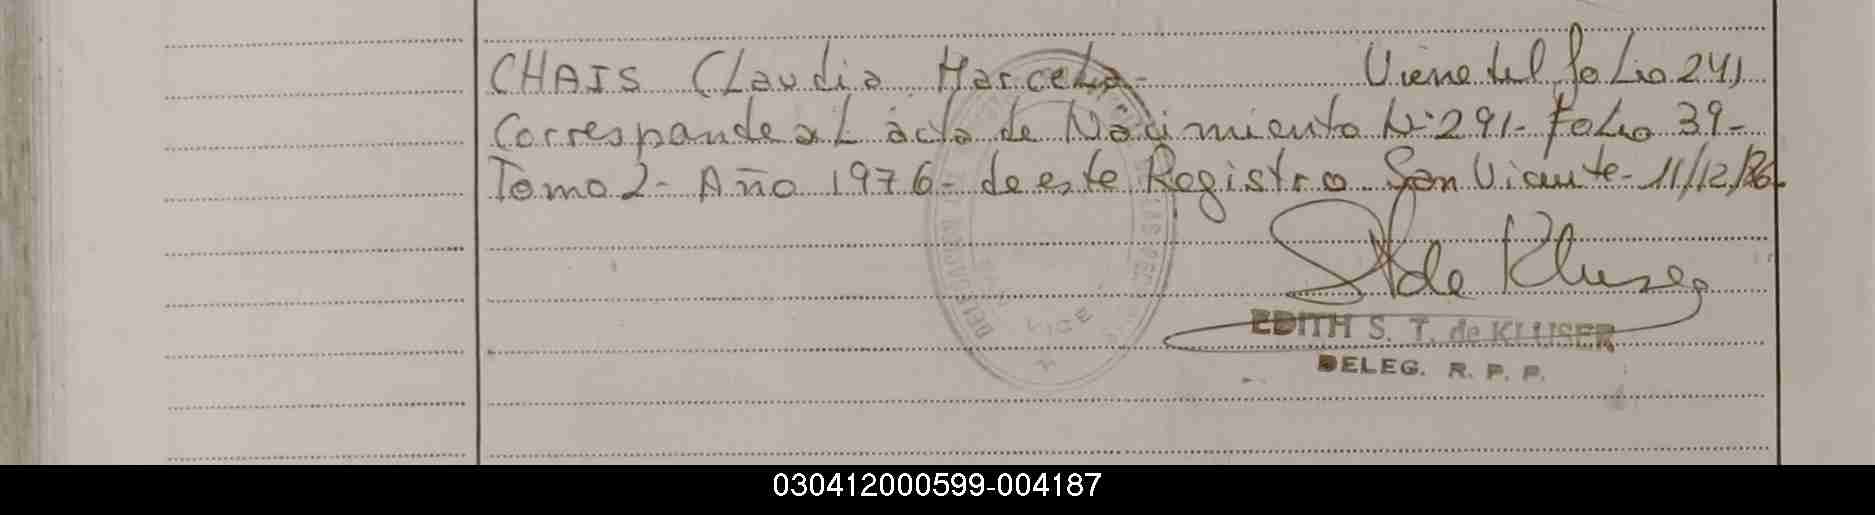 CHAIS Claudia Marcela- Viene del folio 241
Corresponde al acta de Nacimiento Nº 291- Folio 39-
Tomo 2- Año 1976- de este Registro San Vicente- 11/12/86
de Kluser
EDITH S. T. de KLUSER
DELEG. R. P. P.
030412000599-004187